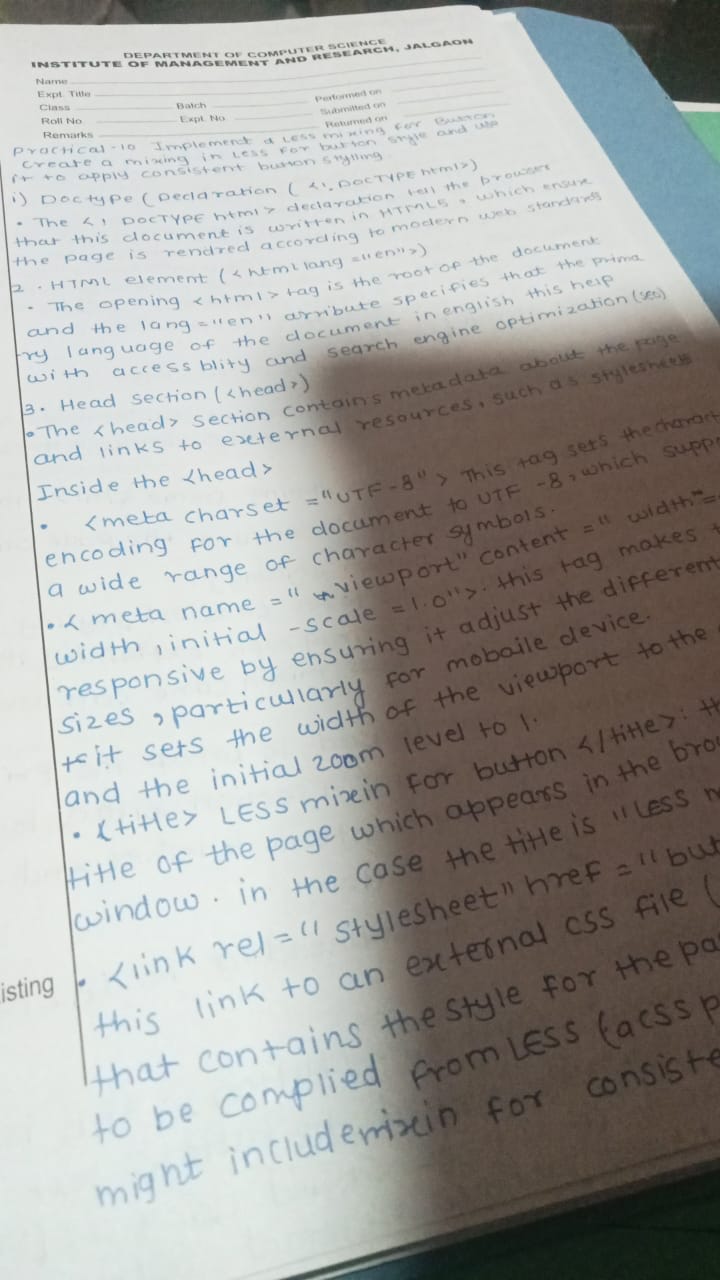 DEPARTMENT OF COMPUTER SCIENCE
INSTITUTE OF MANAGEMENT AND RESEARCH, JALGAON
Name
Expt. Title
Class Batch Performed on
Roll No. Expt. No. Submitted on
Remarks Returned on
Practical-10 Implement a LESS mixing for Button
Create a mixing in LESS for button style and use
it to apply consistent button styling.
i) Doctype (Declaration (<!, DOCTYPE html>)
• The <! DOCTYPE html> declaration tell the browser
that this document is written in HTML5, which ensure
the page is rendred according to modern web standards
2. HTML element (<html lang="en">)
• The opening <html> tag is the root of the document
and the lang="en" arribute specifies that the prima
ry language of the document in english this help
with access blity and search engine optimization (seo)
3. Head section (<head>)
• The <head> section contains metadata about the page
and links to external resources, such as stylesheets
Inside the <head>
• <meta charset ="UTF-8"> This tag sets the charact
encoding for the document to UTF-8, which supp
a wide range of character symbols.
• < meta name = "viewport" content = " width"=
width, initial -scale =1.0">. this tag makes
responsive by ensuring it adjust the different
sizes, particularly for mobaile device.
it sets the width of the viewport to the
and the initial zoom level to 1.
• <title> LESS mixin for button </title>: th
title of the page which appears in the bro
window. in the case the title is "Less m
• <link rel=" stylesheet" href = "but
this link to an external css file (
that contains the style for the pa
isting
to be complied from LESS (a css p
might include mixin for consiste